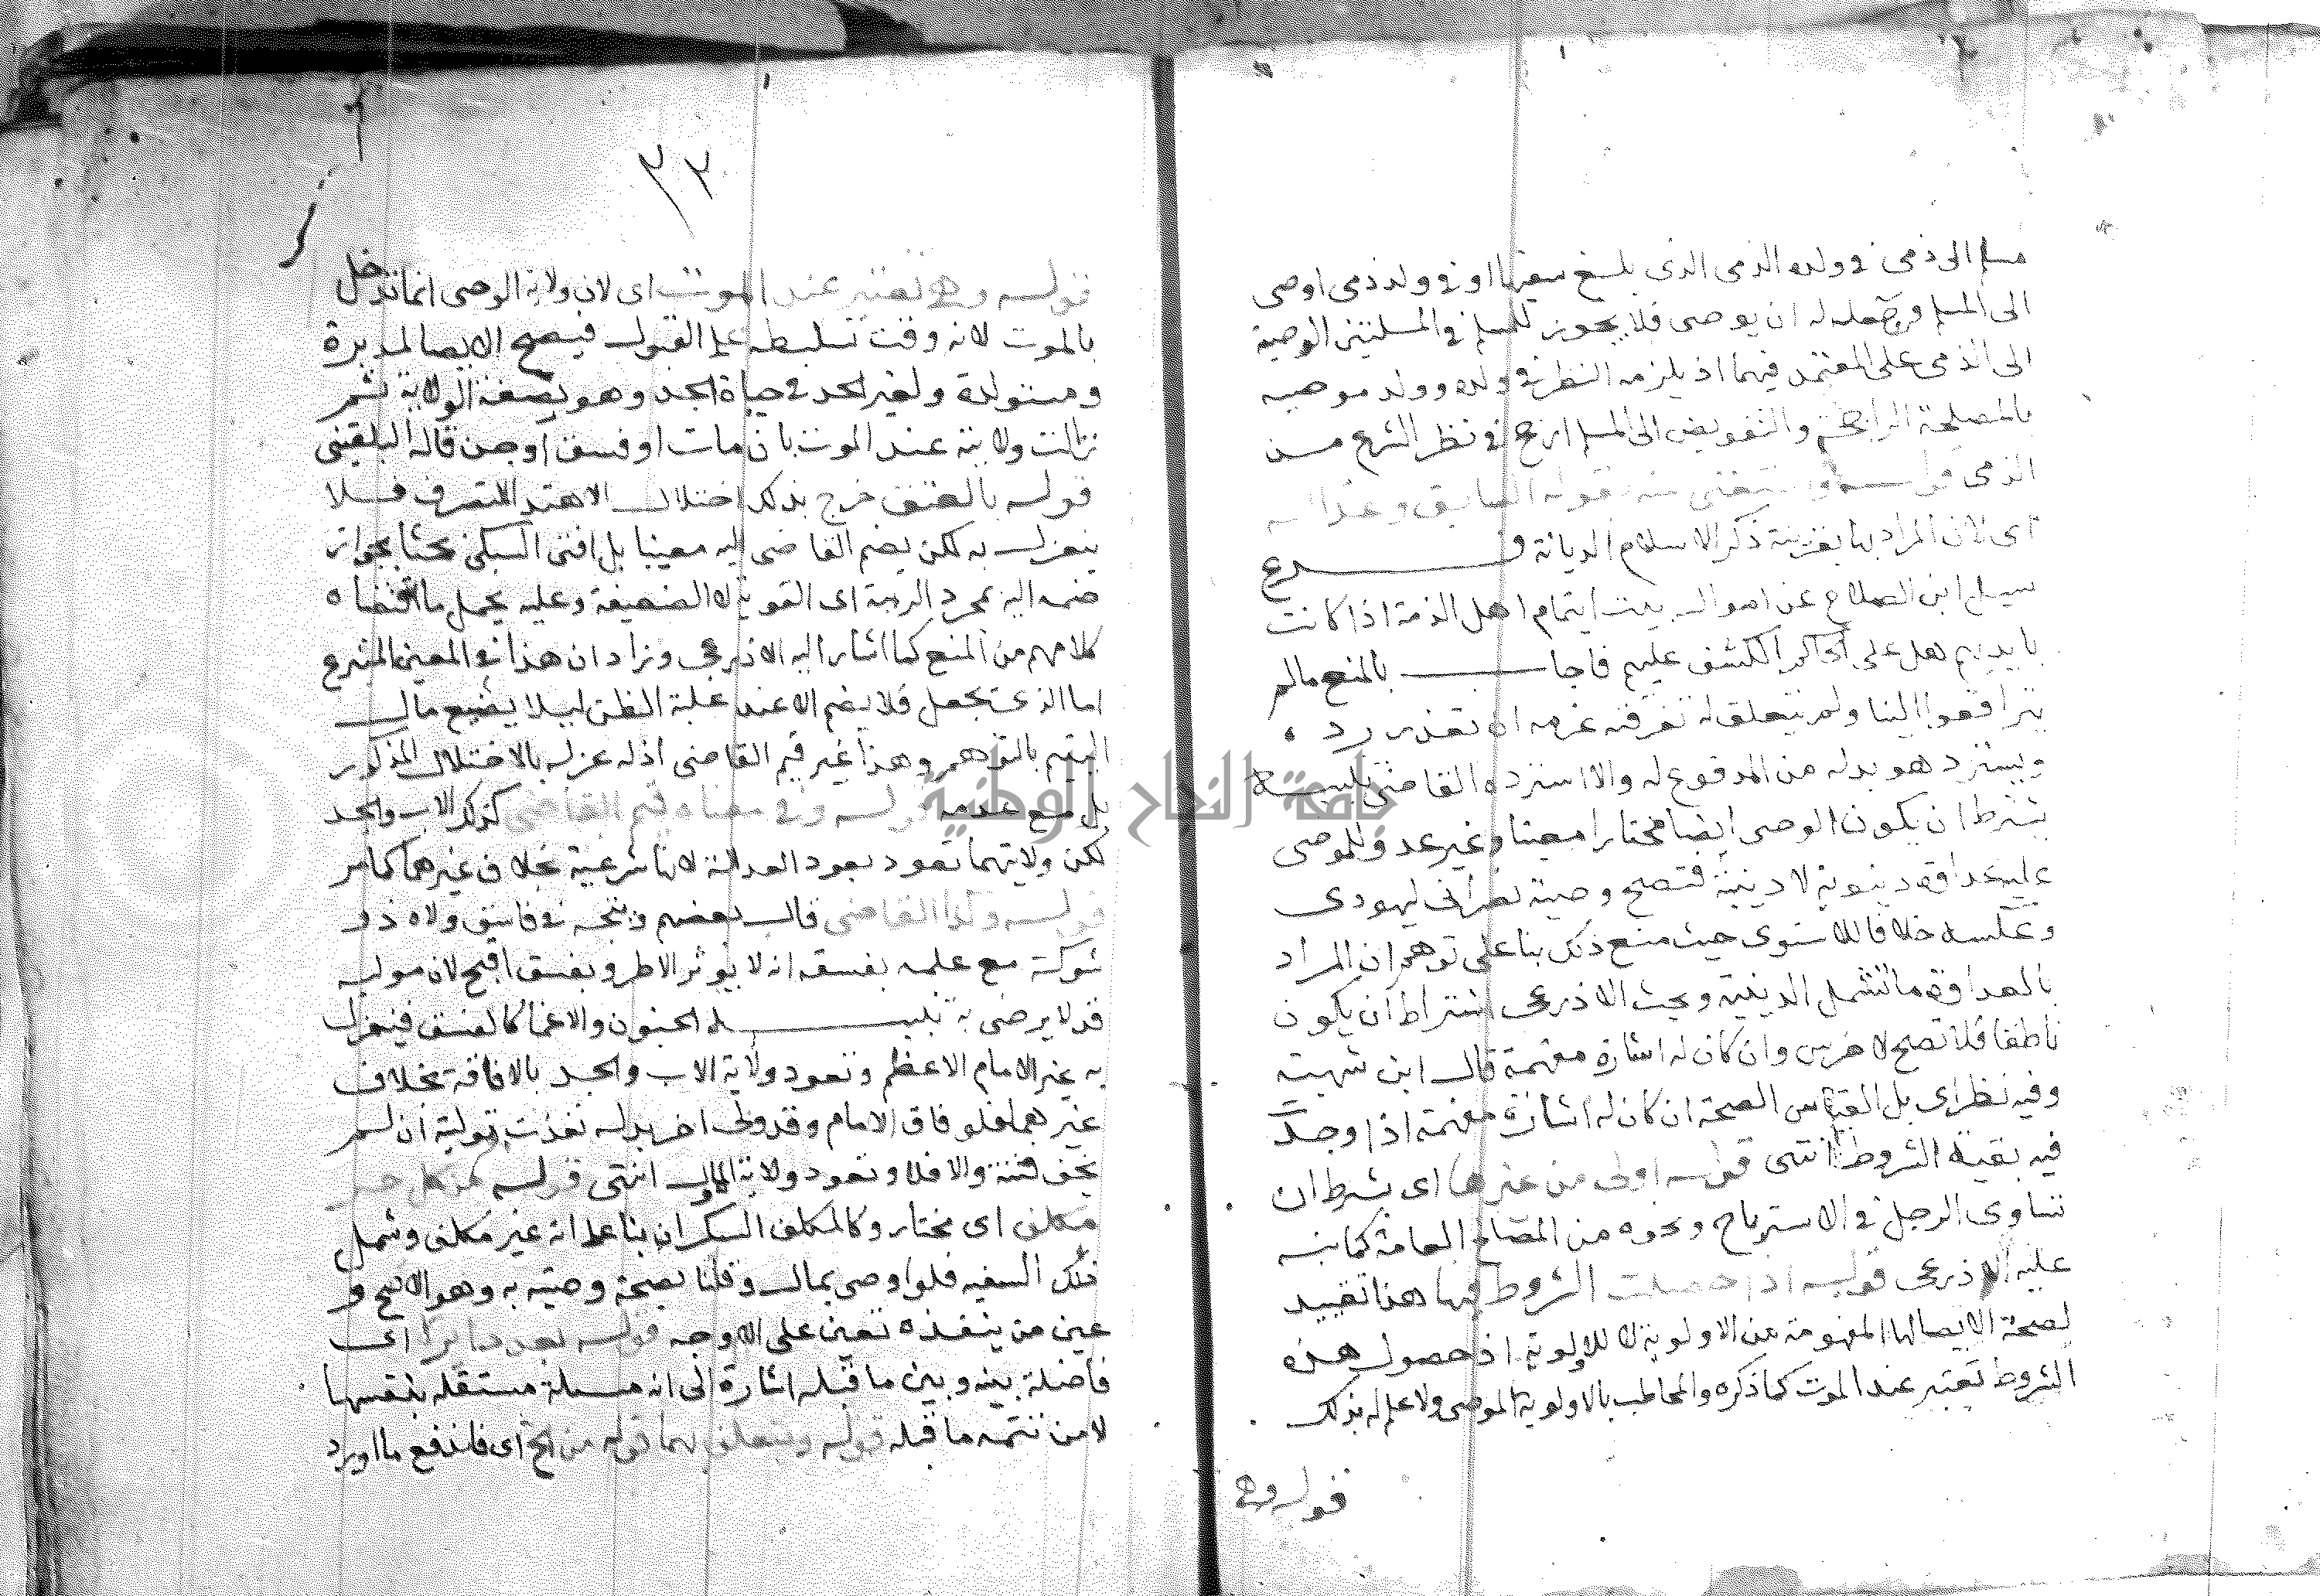 مسلم الى ذمى فى ولده الذمى الذى بلغ سفيها او فى ولد ذمى اوصى
الى المسلم وجعله له ان يوصى فلا يجوز للمسلم فى المسلتين الوصية
الى الذمى على المعتمد فيهما اذ يلزمه النظر فى ولده وولد موصيه
بالمصلحة الراجحة والتفويض الى المسلم ارجح فى نظر الشرع مــن
الذمى قولــــه بقوله السابق وعدالــه
اى لان المراد بها بقرينة ذكر الاسلام الديانة فــــــرع
سيل ابن الصلاح عن اموال بيت ايتام اهل الذمة اذا كانت
بايديهم هل على الحاكم الكشف عليهم فاجاـــــب بالمنع مالم
يترافعوا الينا ولم يتعلق له تفرقته غرمه ان تعذر رد
ويسترد هو بدله من المدفوع له والا استرده القاضى تنبيــه
يشترط ان يكون الوصى ايضا مختارا معينا وغير عدو للموصى
عليه عداوة دينوية لا دينية فتصح وصية نصرانى ليهودى
وعكسه خلافا للاسنوى حيث منع ذلك بنا على توهم ان المراد
بالعداوة ما تشمل الدينية وبحث الاذرعى اشتراط ان يكون
ناطقا فلا تصح لاخرس وان كان له اشارة مفهمة قال ابن شهبة
وفيه نظر اى بل القياس الصحة ان كان له اشارة مفهمة اذا وجد
فيه بقية الشروط انتهى قولــه اولى من غيرها اى بشرط ان
تساوى الرجل فى الاسترباح ونحوه من المصالح العامة كما نبــه
عليه الاذرعى قولــه اذا حصلت الشروط فيها هذا تقييد
لصحة الايصا لها المفهومة من الاولوية لا للاولوية اذ حصول هذه
الشروط تعتبر عند الموت كما ذكره والمخاطب بالاولوية الموصى ولا علم له بذلك
قولــه وهى
٣٢
قولــه وهى تعتبر عند الموت اى لان ولاية الوصى انما تدخل
بالموت لانه وقت تسليطه على القبول فيصح الايصا لمدبرة
ومستولدة ولغير الجد فى حياة الجد وهو بصفة الولاية ثم
زالت ولايته عند الموت بان مات او فسق او جن قاله البلقينى
قولــه بالفسق خرج بذلك اختلال الاهتدا للتصرف فــلا
ينعزل به لكن يضم القاضى اليه معينا بل افتى السبكى بحثا بجواز
ضمه اليه بمجرد الريبة اى القوية لا الضعيفة وعليه يحمل ما اقتضاه
كلامهم من المنع كما اشار اليه الاذرعى وزاد ان هذا فى المعين المتبرع
اما الذى بجعل فلا يضم الا عند غلبة الظن ليلا يضيع مال
اليتيم بالتوهم وهذا غير قيم القاضى اذ له عزله بالاختلال المذكور
بل مع عدمه قولــه وفى معناه قيم القاضى كذلك الاب والجد
لكن ولايتهما تعود بعود العدالة لانها شرعية بخلاف غيرهما كما مر
قولــه وكذا القاضى قال بعضهم ويتجه فى فاسق ولاه ذو
شوكة مع علمه بفسقه انه لا يوثر الا طرو بفسق اقبح لان موليه
قد لا يرضى به تنبيـــــه الجنون والاغما كالفسق فينعزل
به غير الامام الاعظم وتعود ولاية الاب والجد بالافاقة بخلاف
غيرهما فلو فاق الامام وقد ولى اخر بدله نفذت توليته ان لم
يخف فتنة والا فلا وتعود ولاية الاول انتهى قولــه من كل حر
مكلف اى مختار وكالمكلف السكران بنا على انه غير مكلف وشمل
ذلك السفيه فلو اوصى بمال وقلنا بصحة وصيته به وهو الاصح و
عين من ينفذه تعين على الاوجه قولــه اى
فاصلة بينه وبين ما قبله اشارة الى انه مسلة مستقله بنفسها
لا من تتمة ما قبله قولــه ويتعلق بهما قوله من الخ اى فاندفع ما اورد
جامعة النجاح الوطنية